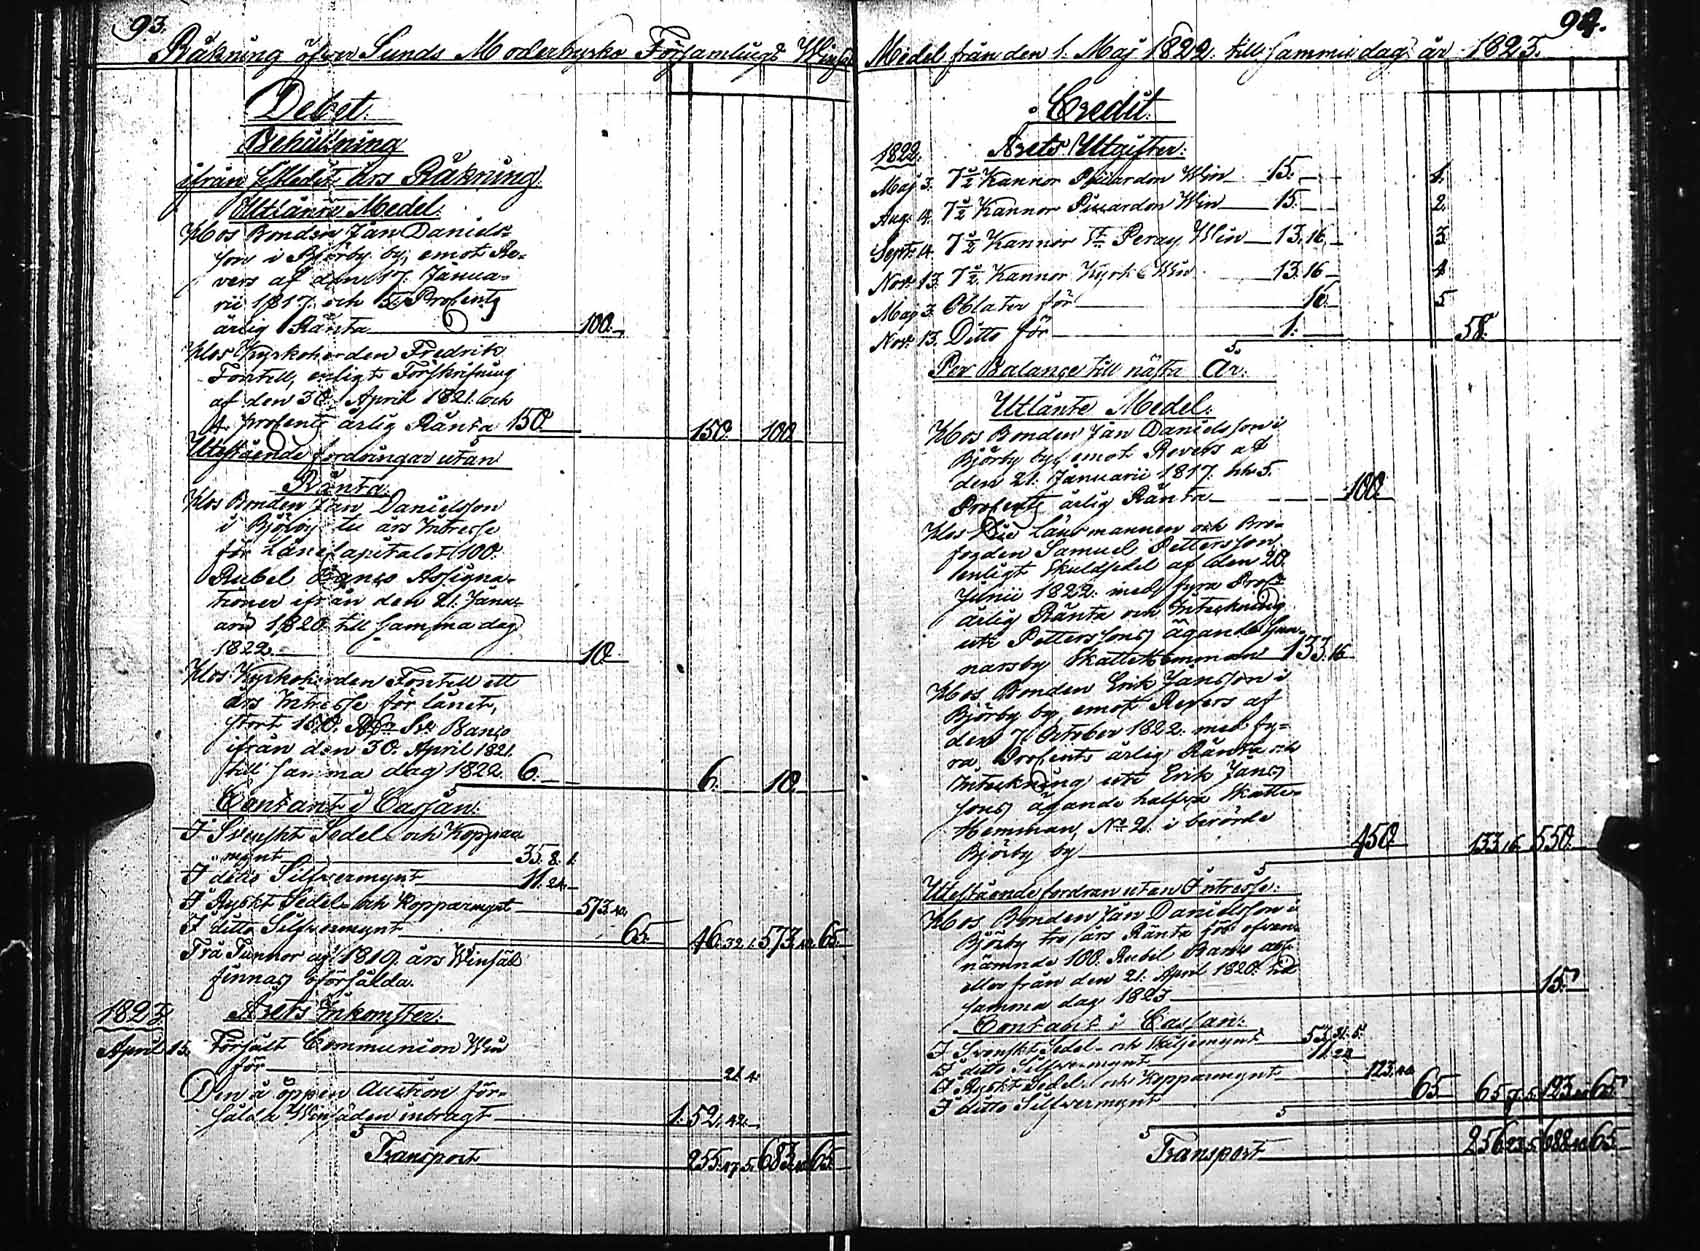 93.
Räkning öfver Sunds Moderkyrko Församlings Winsäds
Debet.
Behållning
ifrån sistledit års Räkning.
Utlånte Medel.
Hos Bonden Jan Daniels-
son i Björby by, emot Re-
vers af den 17. Janua-
rii 1817. och 5. Procents
årlig Ränta 100.
Hos Kyrkoherden Fredrik
Fontell, enligt Förskrifning
af den 30. April 1821. och
4. procents årlig Ränta 150. 150. 100.
Utestående fordringar utan
Ränta.
Hos Bonden Jan Danielsson
i Björby tu års Intresse
för Lånecapitalet 100.
Rubel Banco Assigna-
tioner ifrån den 21. Janu-
arii 1820. till samma dag
1822. 10.
Hos Kyrkoherden Fontell ett
års Intresse för lånet,
stort 150. Rdr Sv. Banco
ifrån den 30. April 1821.
till samma dag 1822. 6. 6. 10.
Contant i Cassan.
I Svenskt Sedel- och Koppar
mynt 35. 8. 1.
I ditto Silfvermynt 11. 24.
I Ryskt Sedel- och Kopparmynt 573. 40.
I ditto Silfvermynt 65. 46. 32. 1. 573. 40. 65.
Två Tunnor af 1819. års Winsäd
finnas oförsålda.
1823. Årets Inkomster.
April 15. Försålt Communion Win
för 2. 4.
Den å öppen Auction för-
sålda Winsäden inbragt 1. 52. 42.
Transport 255. 47. 5. 683. 40. 65.
94.
Medel från den 1. Maj 1822. till samma dag år 1823.
Credit.
1822. Årets Utgifter.
Maj 3. 7½ Kannor Piccardon Win 15. 1.
Aug. 4. 7½ Kannor Piccardon Win 15. 2.
Sept. 14. 7½ Kannor St Peray Win 13. 16. 3.
Nov. 13. 7½ Kannor Kyrk Win 13. 16. 4.
Maj 3. Oblater för 16. 5.
Nov. 13. Ditto för 1. 58.
Per Balance till nästa År.
Utlånte Medel.
Hos Bonden Jan Danielsson i
Björby by, emot Revers af
den 21. Januarii 1817. och 5.
Procents årlig Ränta 100.
Hos Länsmannen och Bro-
fogden Samuel Pettersson
enligt Skuldsedel af den 20.
Junii 1822. med fyra Proc:ts
årlig Ränta och Inteckning
uti Petterssons ägande Gun-
narsby Skattehemman 133. 16.
Hos Bonden Erik Jansson i
Björby by, emot Revers af
den 7. October 1822. med fy-
ra Procents årlig Ränta och
Inteckning uti Erik Jans-
sons ägande halfva Skatte-
Hemman No 2. i berörde
Björby by 450. 133. 16. 550.
Utestående fordran utan Intresse.
Hos Bonden Jan Danielsson i
Björby tre års Ränta för ofvan
nämnde 100. Rubel Banco
eller från den 21. April 1820. till
samma dag 1823 15.
Contant i Cassan.
I Svenskt Sedel- och Skiljemynt 53. 31. 5.
I ditto Silfvermynt 11. 24.
I Ryskt Sedel- och Kopparmynt 123. 40.
I ditto Silfvermynt 65. 65. 7. 5. 123. 40. 65.
Transport 256. 23. 5. 688. 40. 65.